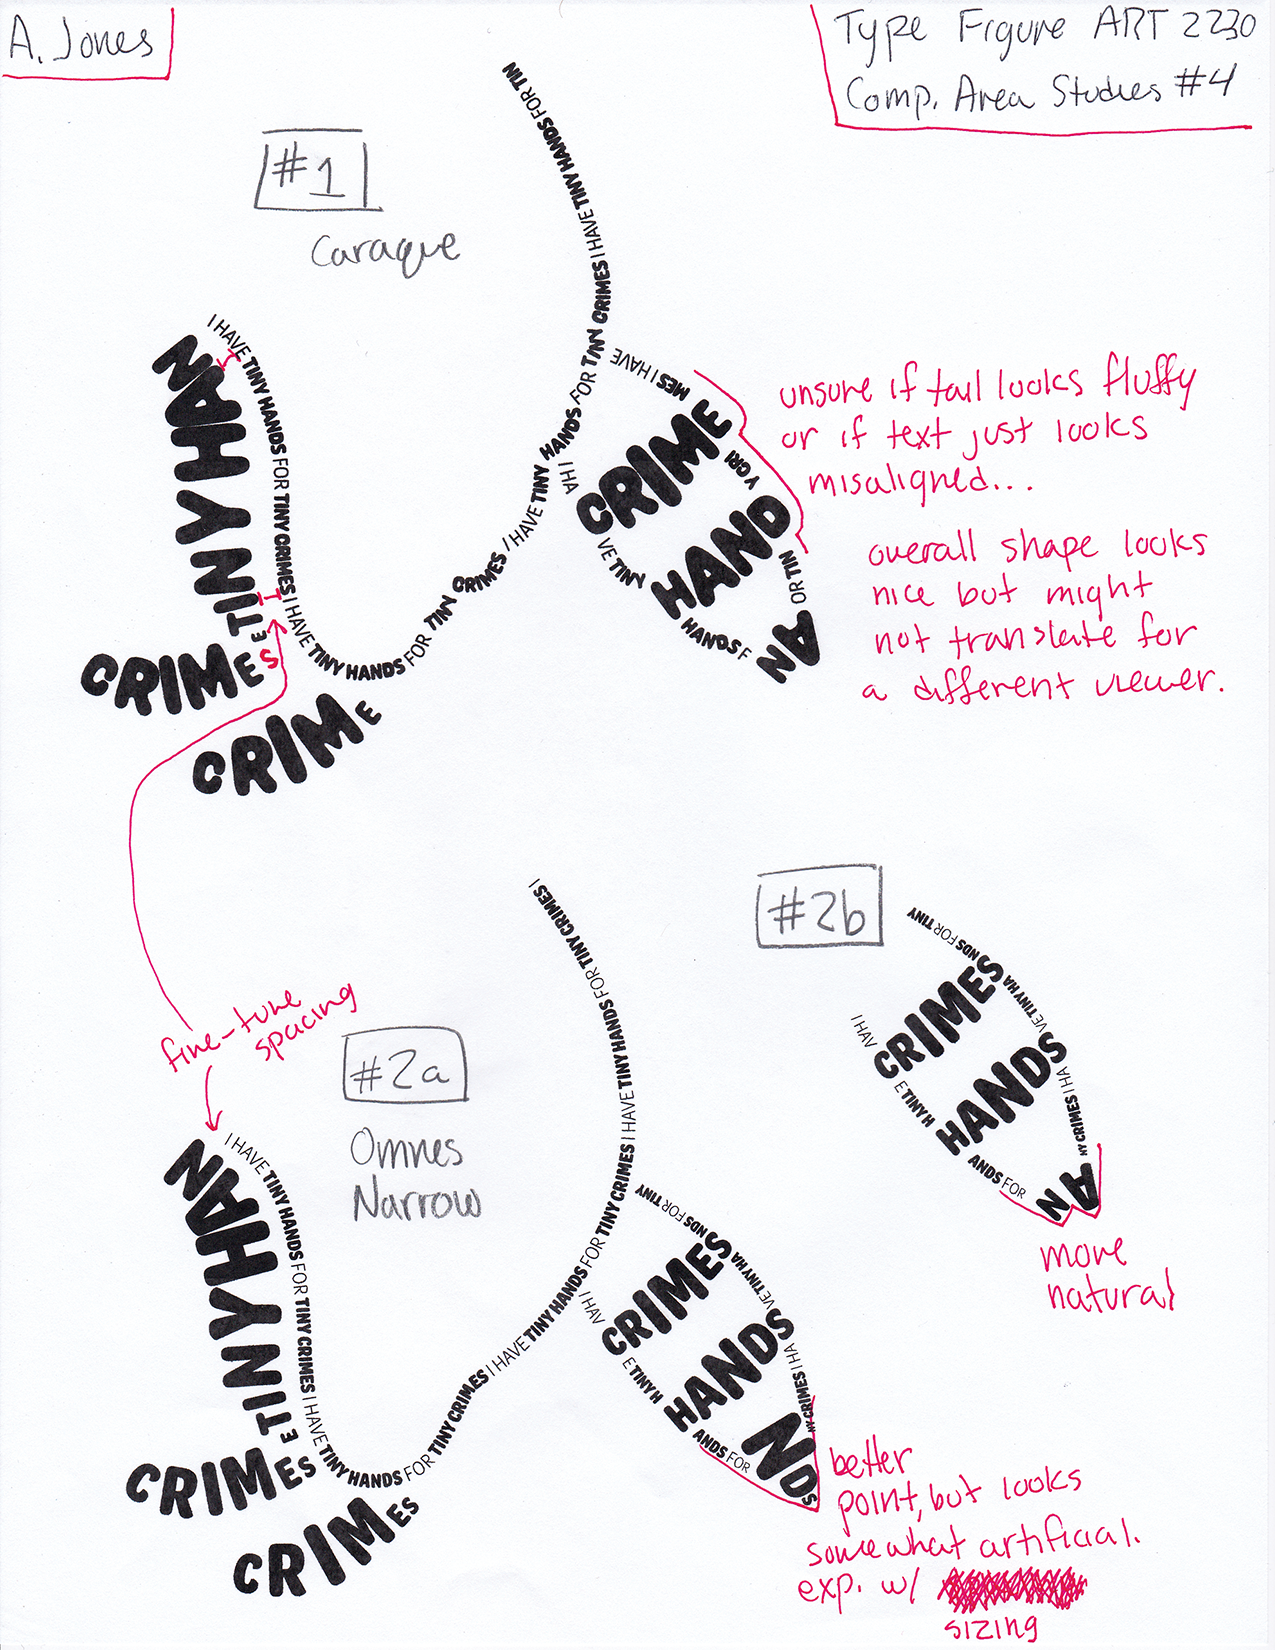 A. Jones
Type Figure ART 2230
Comp. Area Studies #4
#1
Caraque
I HAVE TINY HANDS FOR TINY CRIMES I HAVE TINY HANDS FOR TINY CRIMES I HAVE TINY HANDS FOR TINY CRIMES I HAVE TINY HANDS FOR TIN
TINY HAN
E
CRIMES
CRIME
MES I HAVE
I HA
CRIME
Y CRI
VE TINY
HAND
OR TIN
HANDS F
AN
unsure if tail looks fluffy
or if text just looks
misaligned...
overall shape looks
nice but might
not translate for
a different viewer.
fine-tune
spacing
#2a
Omnes
Narrow
I HAVE TINY HANDS FOR TINY CRIMES I HAVE TINY HANDS FOR TINY CRIMES I HAVE TINY HANDS FOR TINY CRIMES I HAVE TINY HANDS FOR TINY CRIMES I
TINY HAN
E
CRIMES
CRIMES
NDS FOR TINY
I HAV
CRIMES
VE TINY HA
E TINY H
HANDS
NY CRIMES I HA
ANDS FOR
NDS
better
point, but looks
somewhat artificial.
exp. w/
sizing
#2b
NDS FOR TINY
I HAV
CRIMES
VE TINY HA
E TINY H
HANDS
NY CRIMES I HA
ANDS FOR
AN
more
natural